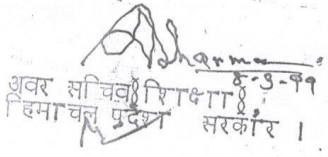 Asharma
8-3-99
अवर सचिव §शिक्षा§
हिमाचल प्रदेश सरकार ।